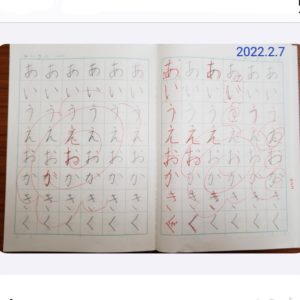 2022.2.7
あいうえおかきく
あいうえおかきく
あいうえおかきく
あいうえおかきく
あいうえおかきく
あいうえおかきく
あいうえおかきく
あいうえおかきく
あいうえおかきく
あいうえおかきく
あいうえおかきく
あいうえおかきく